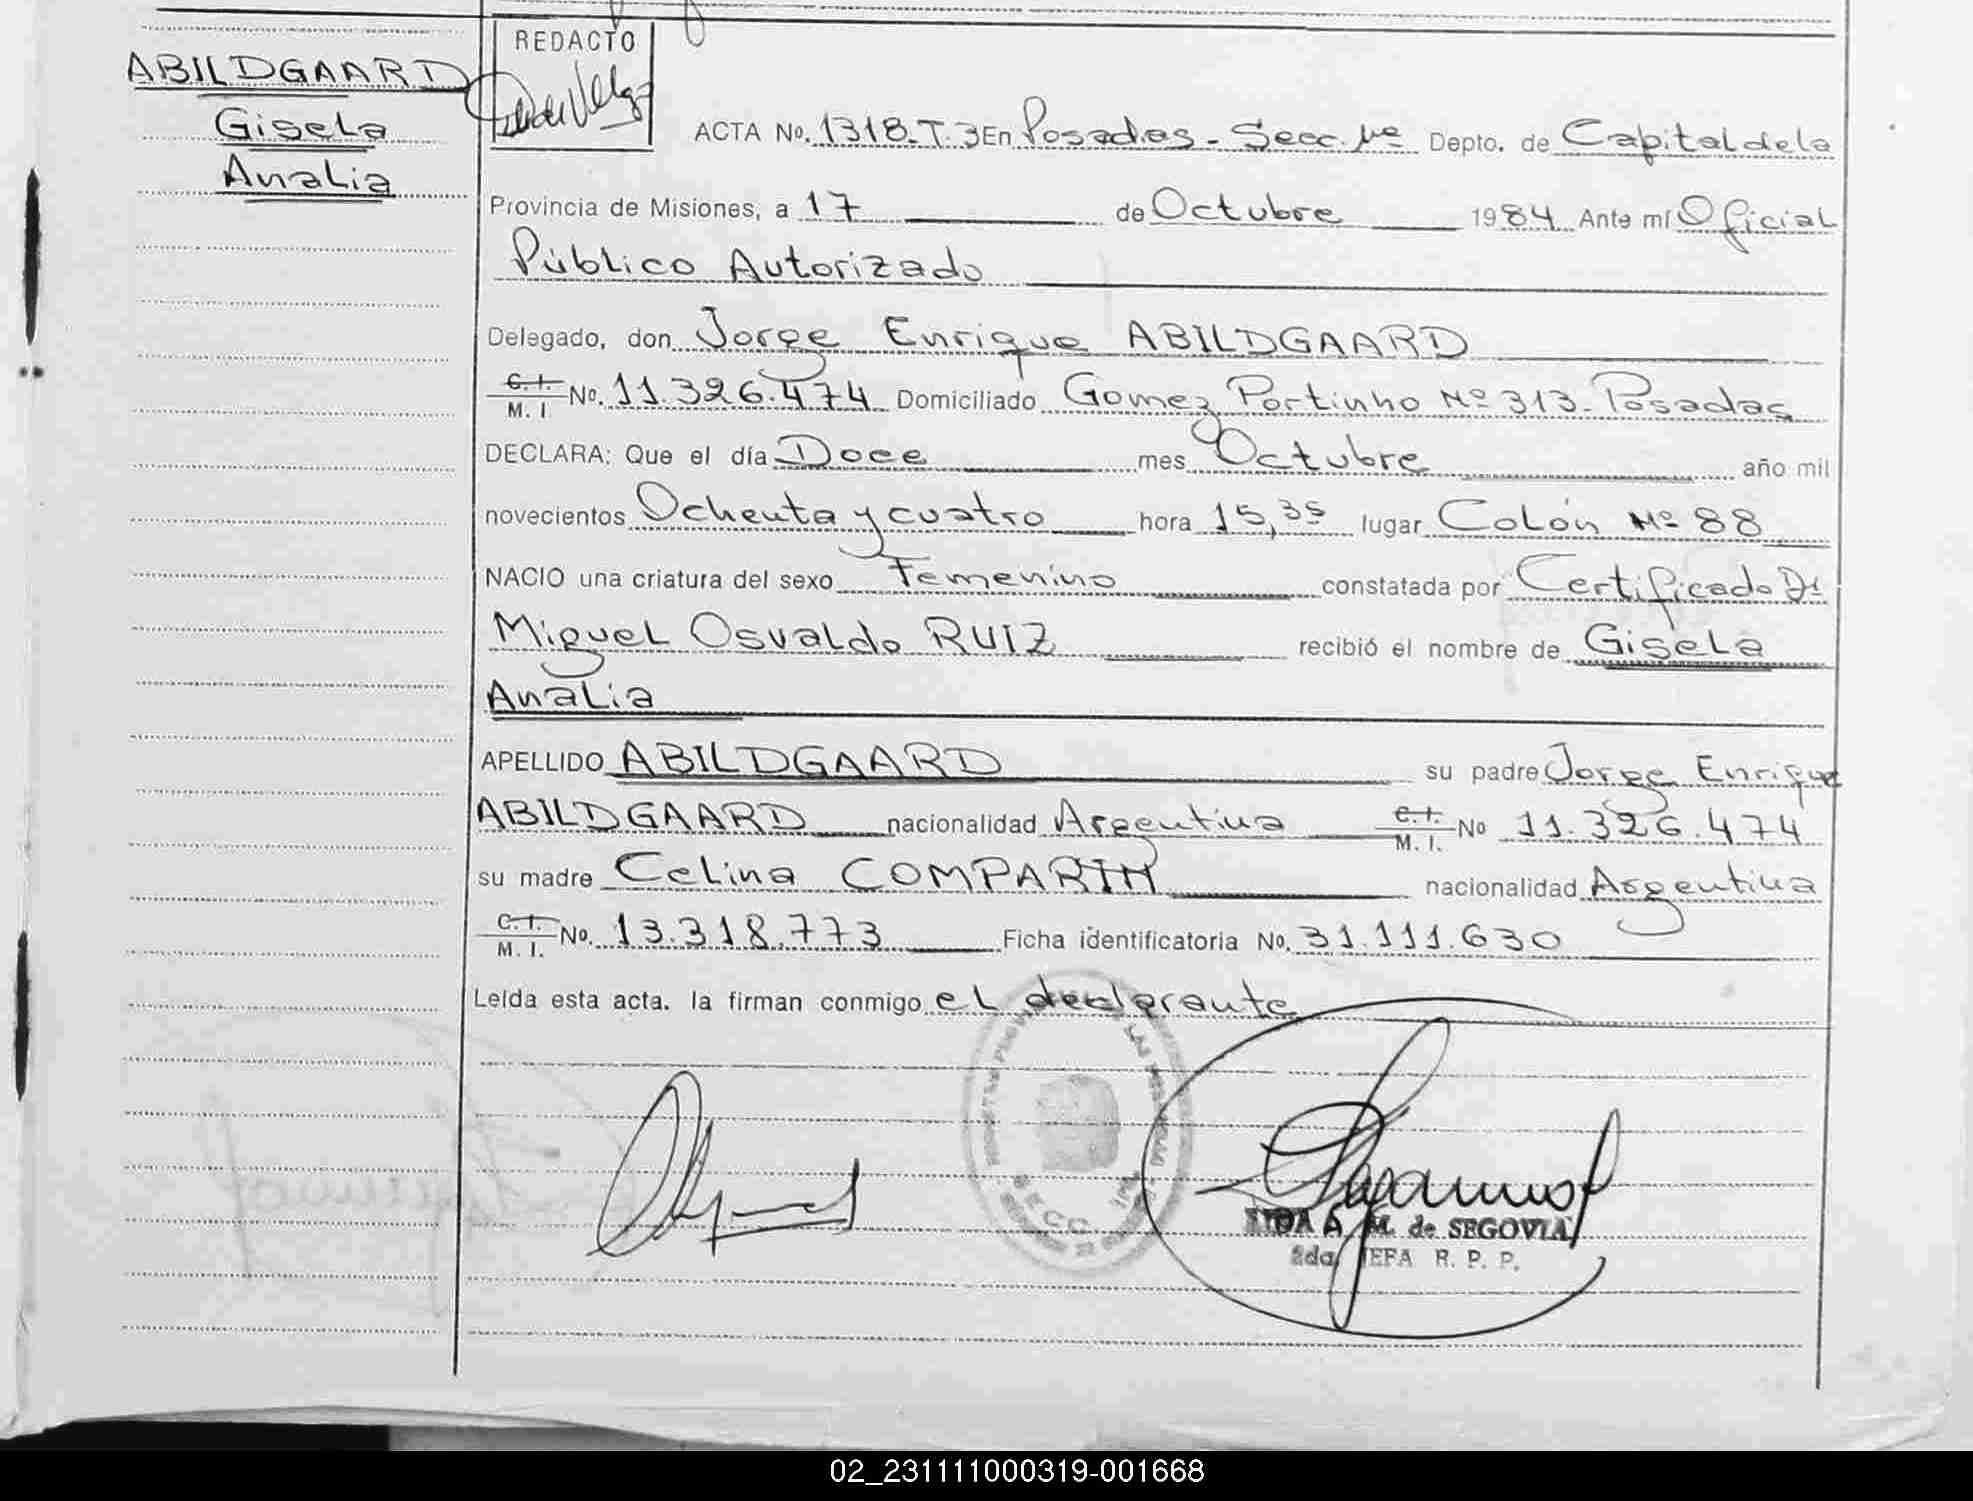 ABILDGAARD
Gisela
Analia
REDACTO
ACTA No. 1318-T.3 En Posadas - Secc. 1ra Depto. de Capital de la
Provincia de Misiones, a 17 de Octubre 1984 Ante mí Oficial
Público Autorizado
Delegado, don Jorge Enrique ABILDGAARD
C. I. M. I. No. 11.326.474 Domiciliado Gomez Portinho Nº 313- Posadas
DECLARA: Que el día Doce mes Octubre año mil
novecientos Ochenta y cuatro hora 15,35 lugar Colón Nº 88
NACIO una criatura del sexo Femenino constatada por Certificado Dr
Miguel Osvaldo RUIZ recibió el nombre de Gisela
Analia
APELLIDO ABILDGAARD su padre Jorge Enrique
ABILDGAARD nacionalidad Argentina C. I. M. I. No 11.326.474
su madre Celina COMPARIN nacionalidad Argentina
C. I. M. I. No. 13.318.773 Ficha identificatoria No. 31.111.630
Leída esta acta. la firman conmigo el declarante
A. M. de SEGOVIA
2da. JEFA R. P. P.
02_231111000319-001668